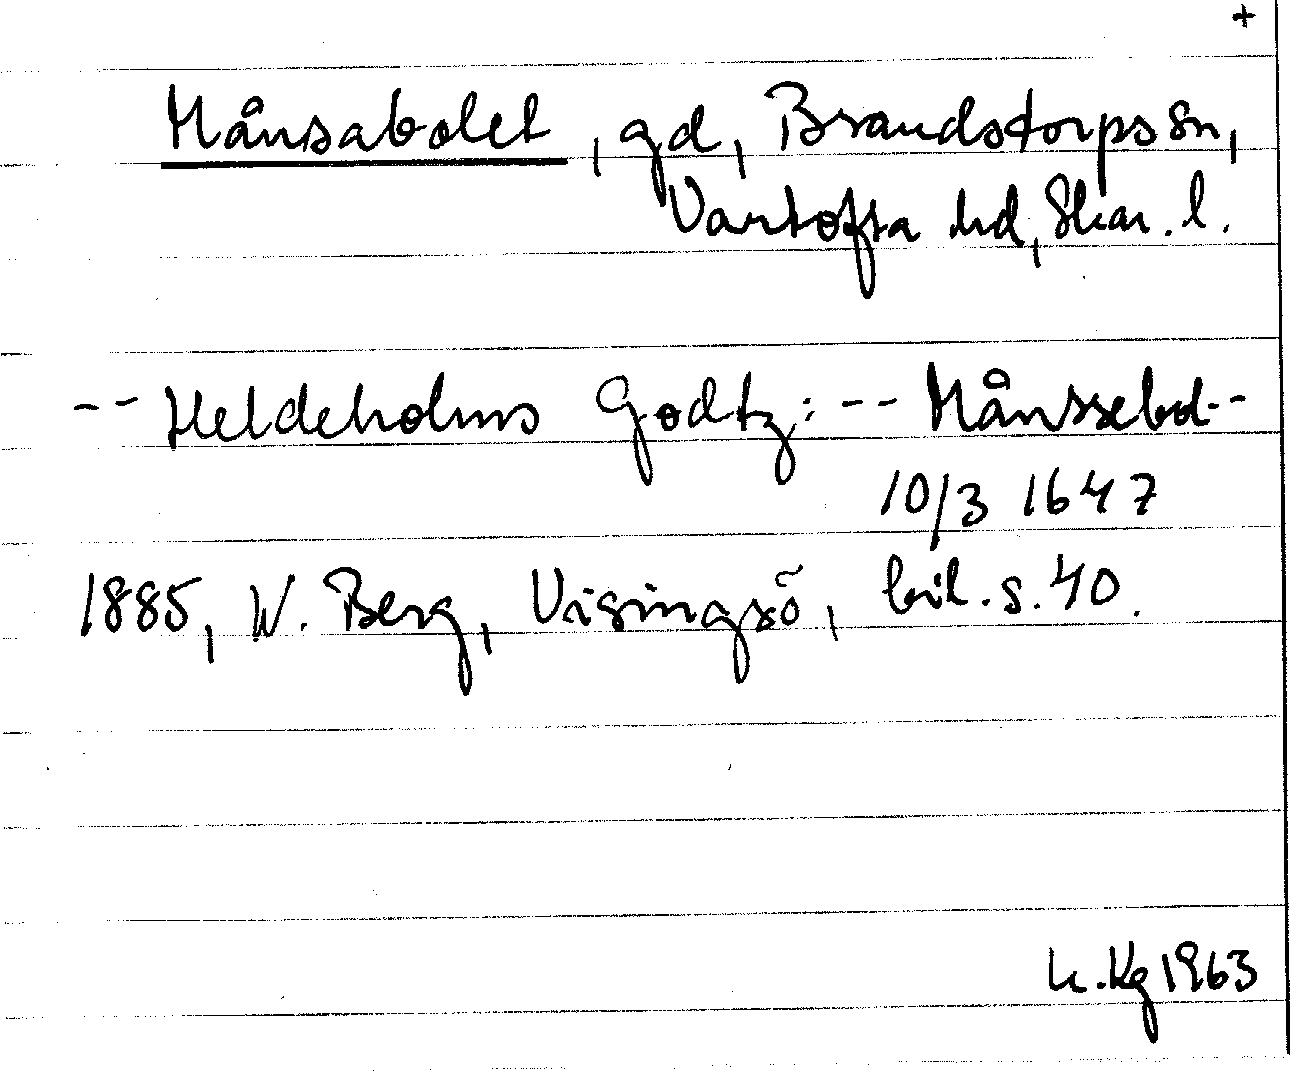 +
Månsabolet, gd, Brandstorps sn,
Vartofta hd, Skar. l.
-- Heldeholms Godtz: -- Månssebol--
10/3 1647
1885, W. Berg, Visingsö, bil. s. 40.
K. Kg 1963